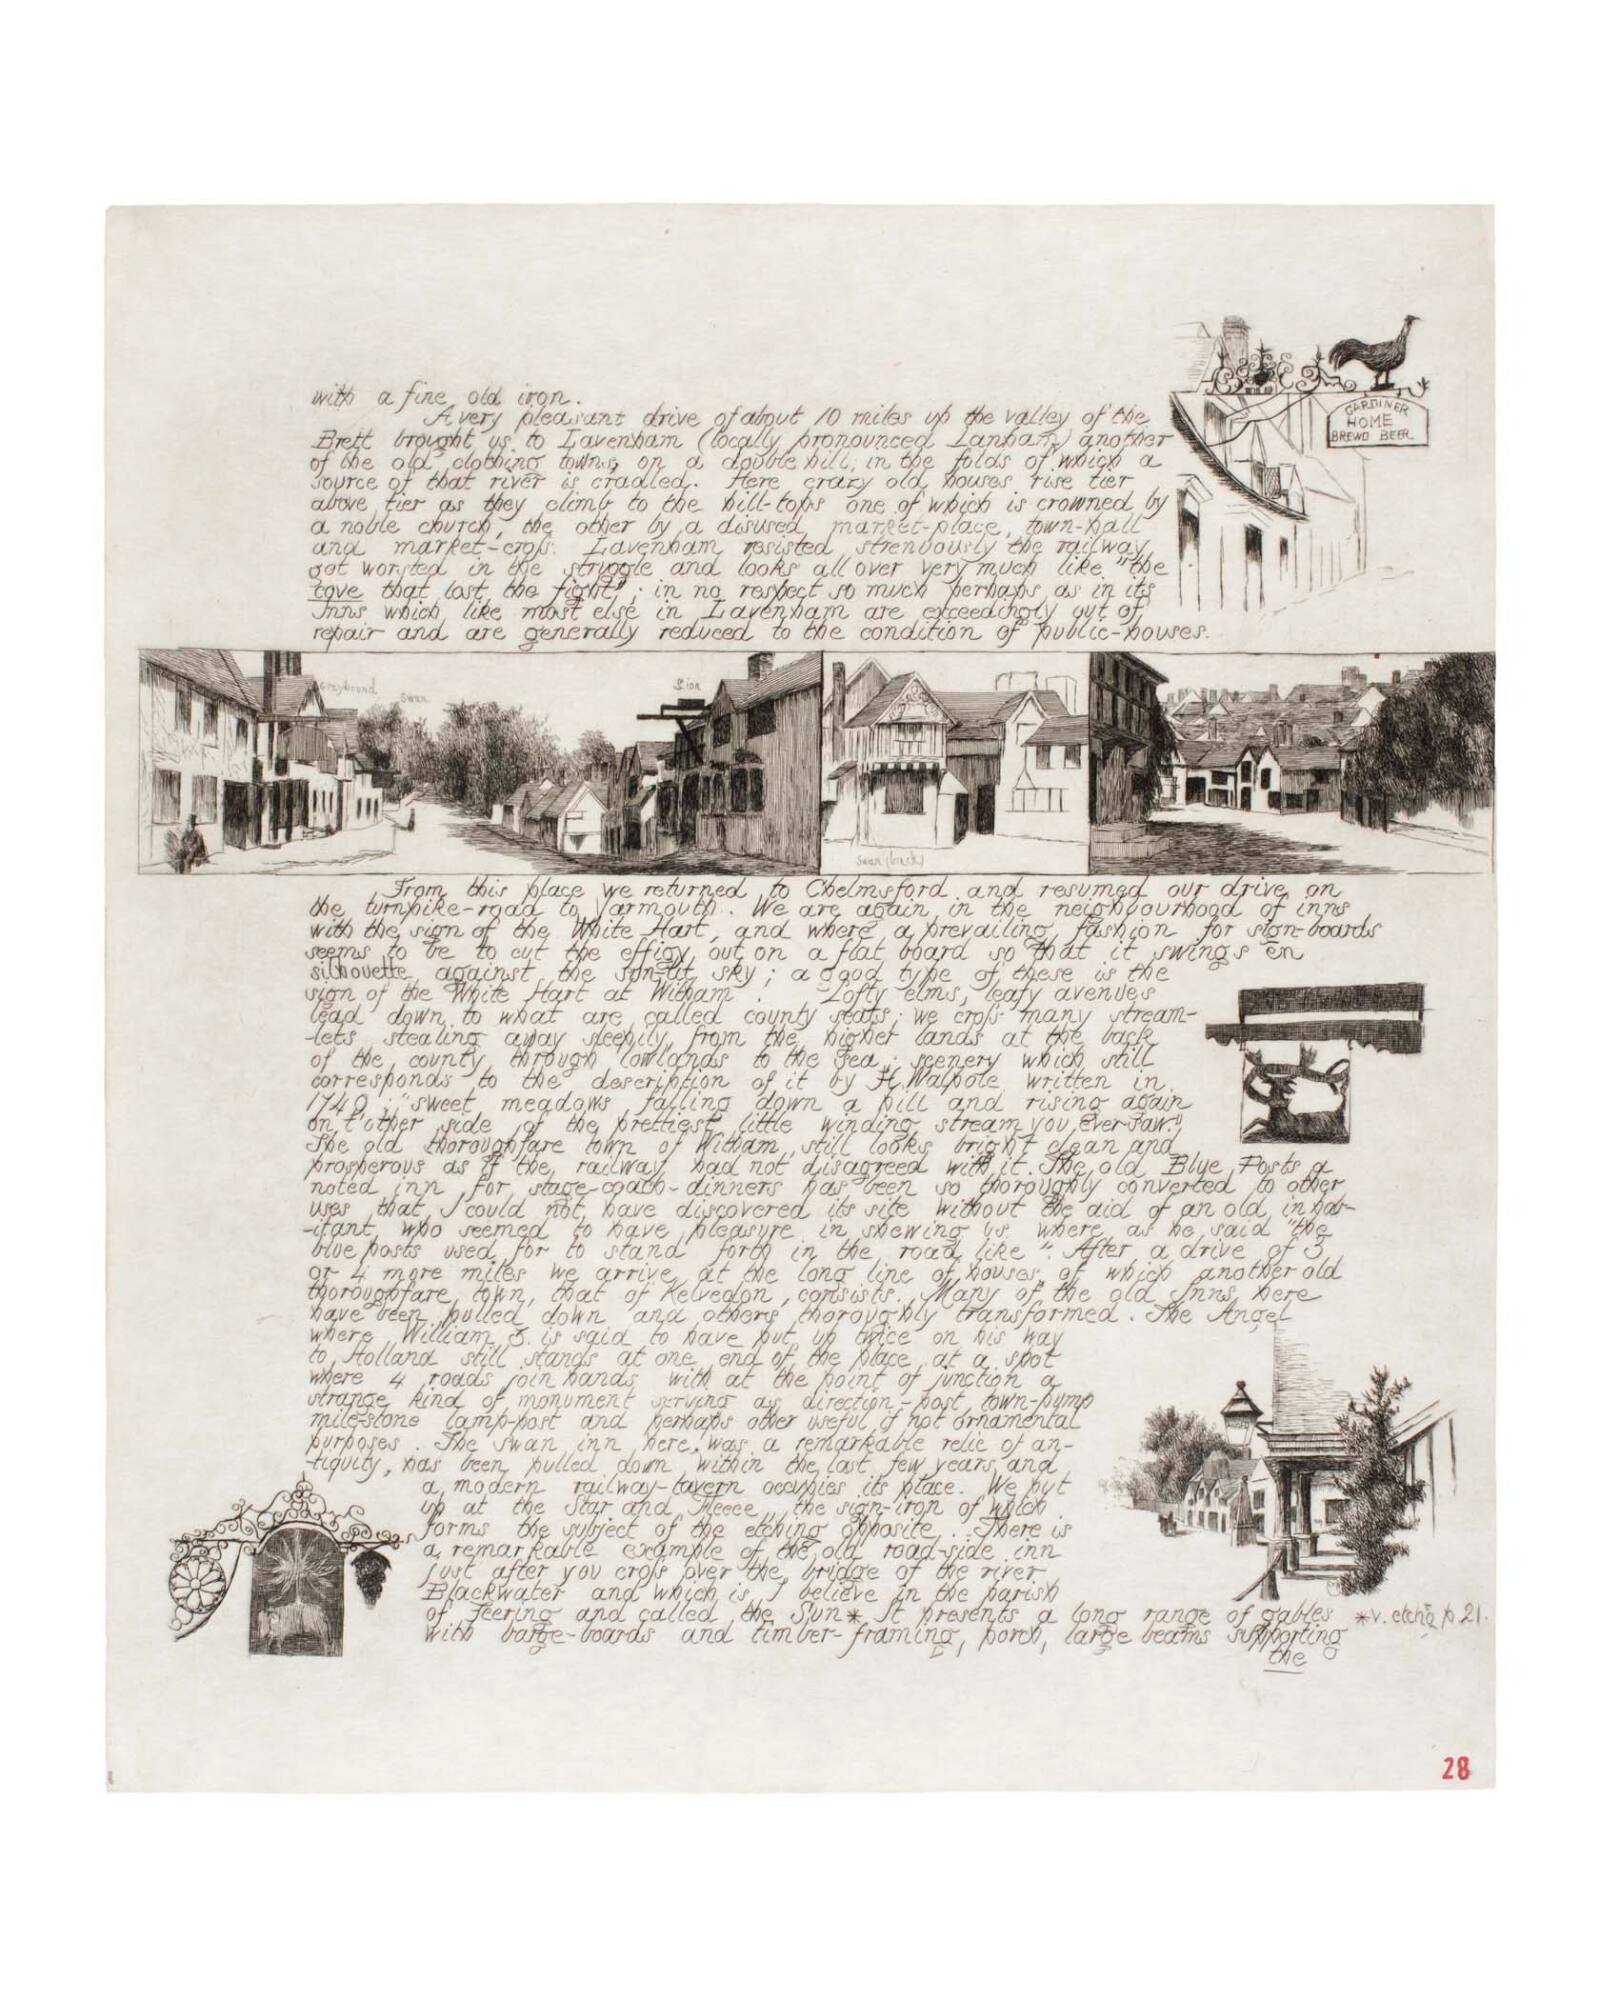 with a fine old iron.
A very pleasant drive of about 10 miles up the valley of the
Brett brought us to Lavenham (locally pronounced Lanham) another
of the old clothing towns, on a double hill, in the folds of which a
source of that river is cradled. Here crazy old houses rise tier
above tier as they climb to the hill-tops one of which is crowned by
a noble church, the other by a disused market-place, town-hall
and market-cross. Lavenham resisted strenuously the railway,
got worsted in the struggle and looks all over very much like "the
cove that lost the fight"; in no respect so much perhaps as in its
Inns which like most else in Lavenham are exceedingly out of
repair and are generally reduced to the condition of public-houses.
GARDINER
HOME
BREWD BEER
Greyhound
Swan
Lion
Swan (back)
From this place we returned to Chelmsford and resumed our drive on
the turnpike-road to Yarmouth. We are again in the neighbourhood of inns
with the sign of the White Hart, and where a prevailing fashion for sign-boards
seems to be to cut the effigy out on a flat board so that it swings en
silhouette against the sun-lit sky; a good type of these is the
sign of the White Hart at Witham. Lofty elms, leafy avenues
lead down to what are called county seats; we cross many stream-
-lets stealing away sleepily from the higher lands at the back
of the county through lowlands to the sea; scenery which still
corresponds to the description of it by H. Walpole written in
1749; "sweet meadows falling down a hill and rising again
on t'other side of the prettiest little winding stream you ever saw."
The old thoroughfare town of Witham, still looks bright clean and
prosperous as if the railway had not disagreed with it. The old Blue Posts a
noted inn for stage-coach-dinners has been so thoroughly converted to other
uses that I could not have discovered its site without the aid of an old inhab-
-itant who seemed to have pleasure in shewing us where as he said "the
blue posts used for to stand forth in the road like". After a drive of 3
or 4 more miles we arrive at the long line of houses of which another old
thoroughfare town, that of Kelvedon, consists. Many of the old Inns here
have been pulled down and others thoroughly transformed. The Angel
where William 3. is said to have put up twice on his way
to Holland still stands at one end of the place at a spot
where 4 roads join hands with at the point of junction a
strange kind of monument serving as direction-post town-pump
mile-stone lamp-post and perhaps other useful if not ornamental
purposes. The Swan inn here was a remarkable relic of an-
-tiquity, has been pulled down within the last few years and
a modern railway-tavern occupies its place. We put
up at the Star and Fleece, the sign-iron of which
forms the subject of the etching opposite. There is
a remarkable example of the old road-side inn
just after you cross over the bridge of the river
Blackwater and which is I believe in the parish
of Feering and called the Sun* It presents a long range of gables
*v. etchg p 21.
with barge-boards and timber-framing, porch, large beams supporting
the
28